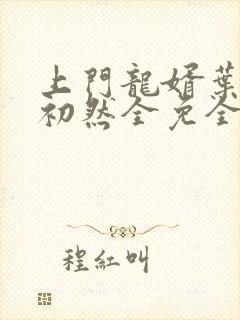 上門龍婿葉
初然全免全
程紅叫